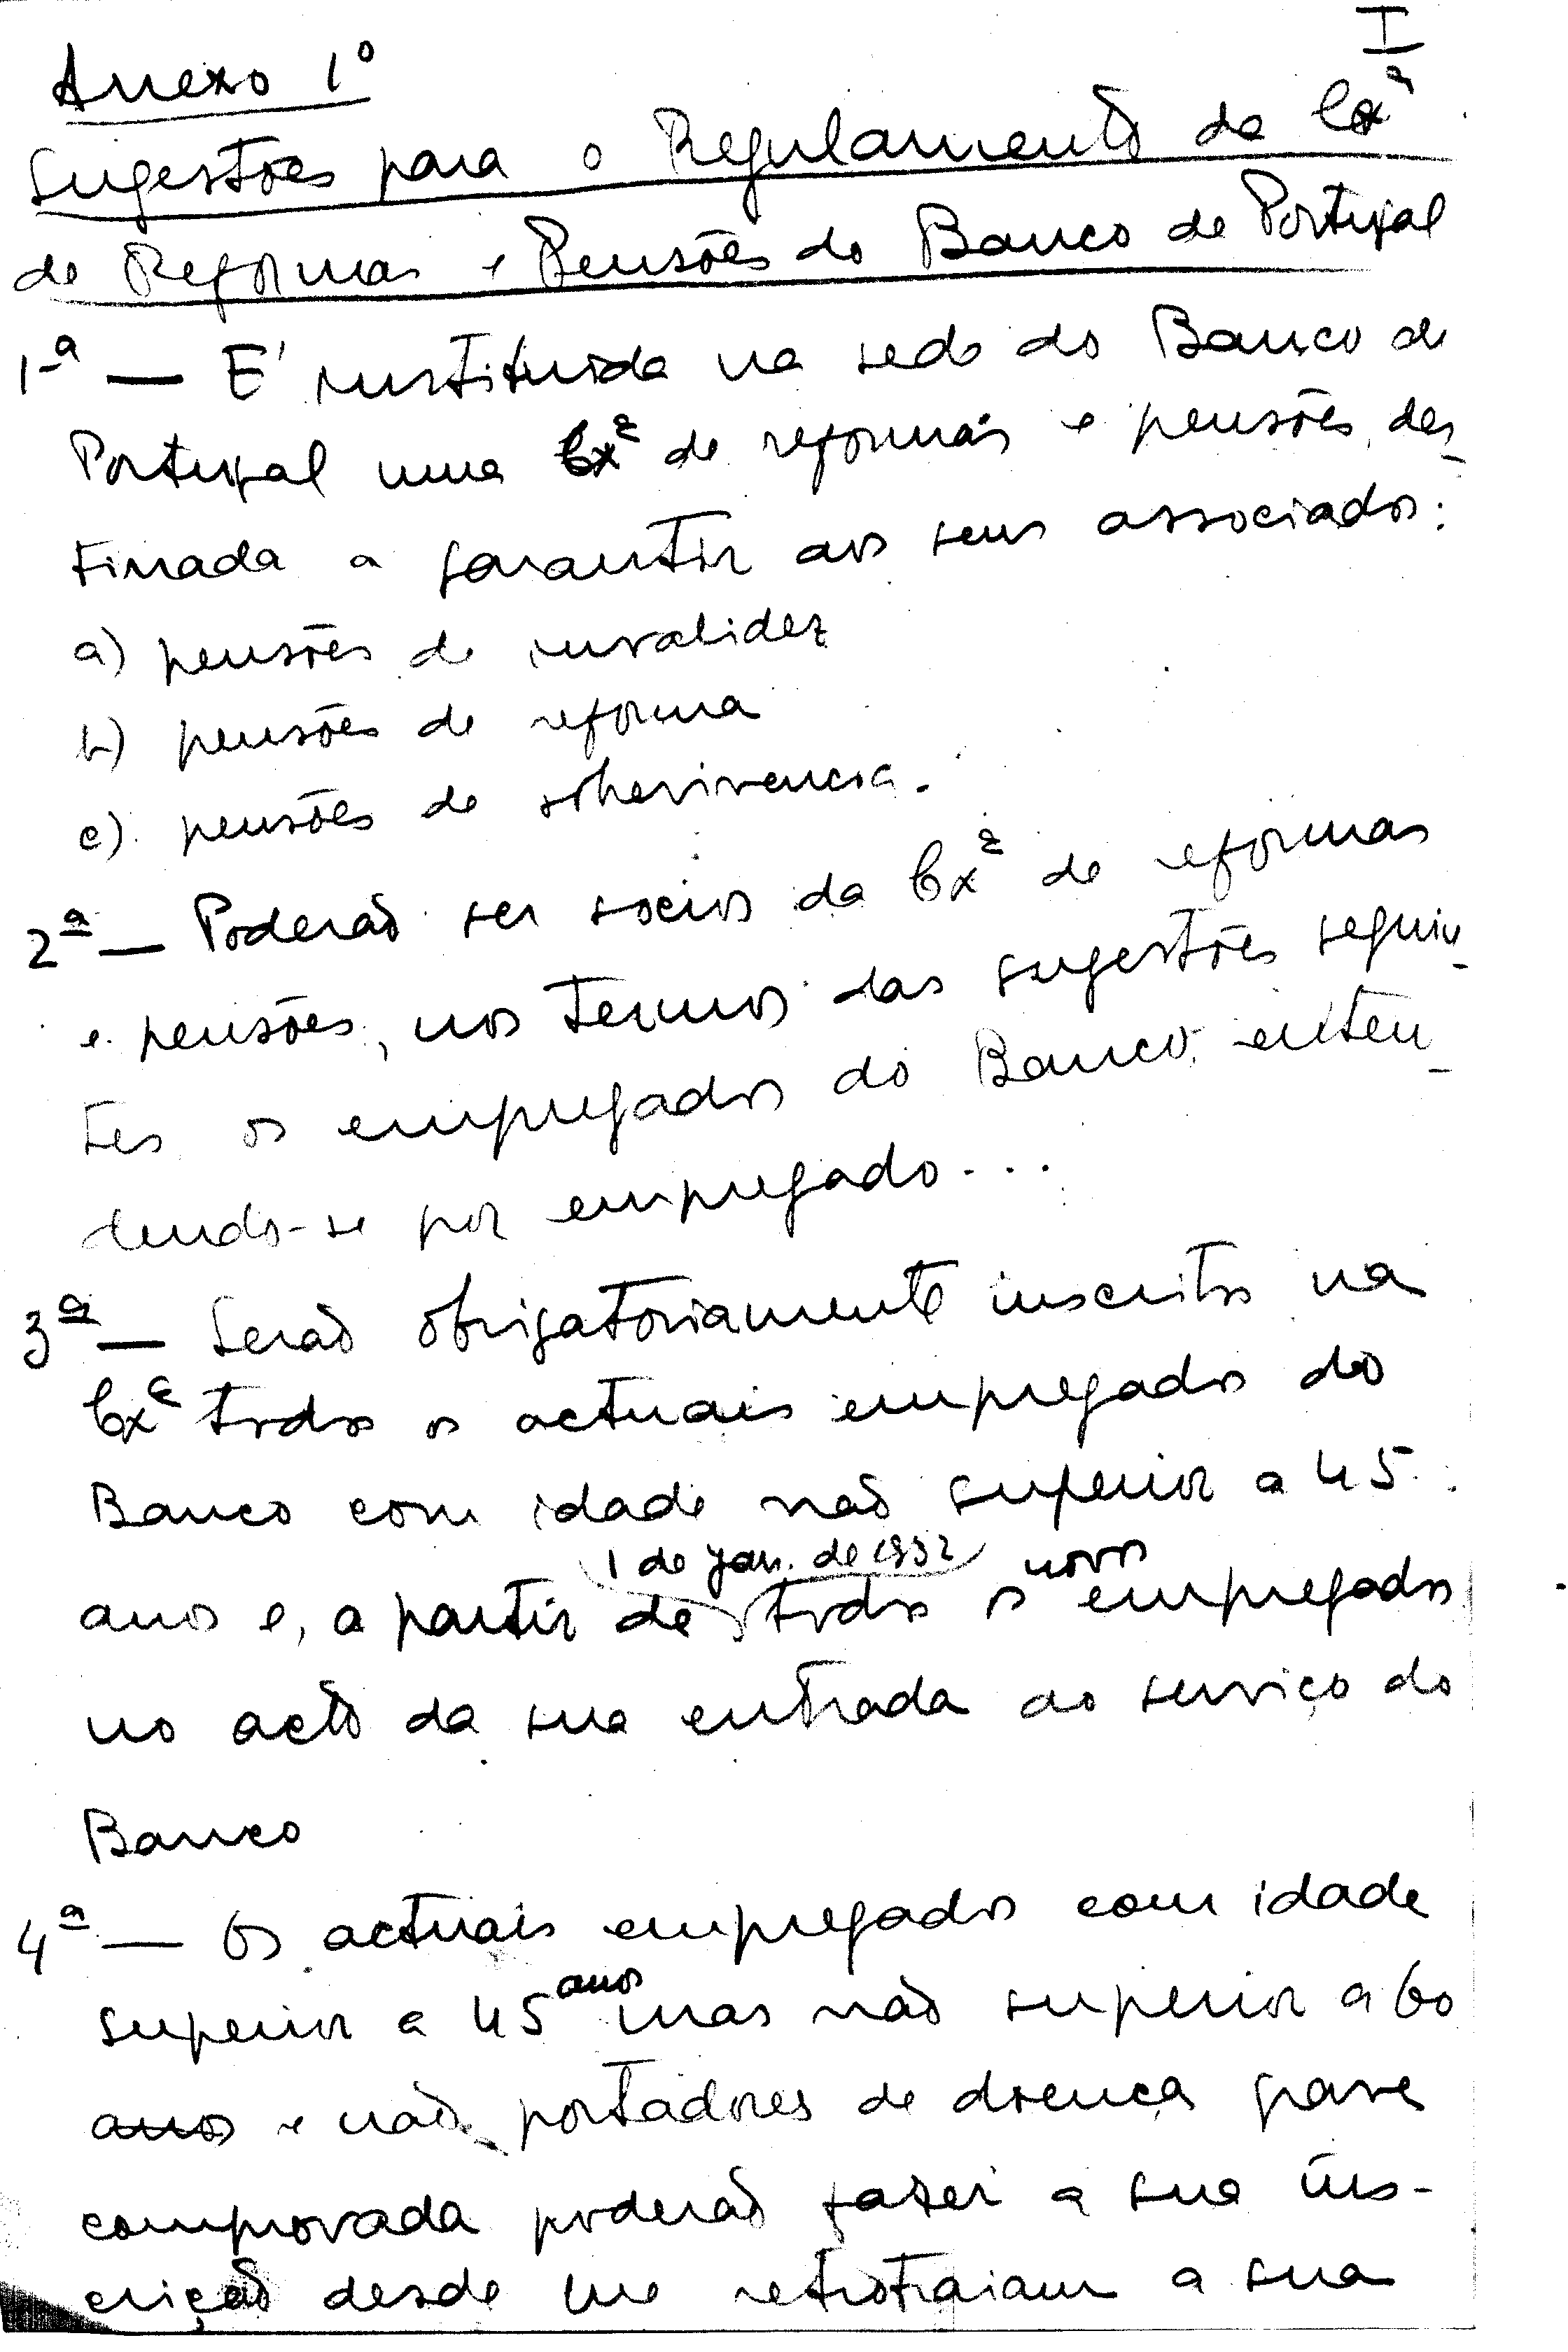 I
Anexo 1º
Sugestões para o Regulamento da Cxª
de Reformas e Pensões do Banco de Portugal
1ª — E' instituida na sede do Banco de
Portugal uma Cxª de reformas e pensões, des-
tinada a garantir aos seus associados:
a) pensões de invalidez
b) pensões de reforma
c) pensões de sobrevivencia.
2ª — Poderão ser socios da Cxª de reformas
e pensões, nos termos das sugestões seguin-
tes os empregados do Banco, enten-
dendo-se por empregado...
3ª — Serão obrigatoriamente inscritos na
Cxª todos os actuais empregados do
Banco com idade não superior a 45
1 de Jan. de 1932 novos
anos e, a partir de todos os empregados
no acto da sua entrada ao serviço do
Banco
4ª — Os actuais empregados com idade
superior a 45 anos mas não superior a 60
anos e não portadores de doença grave
comprovada poderão fazer a sua ins-
crição desde que retrotraiam a sua